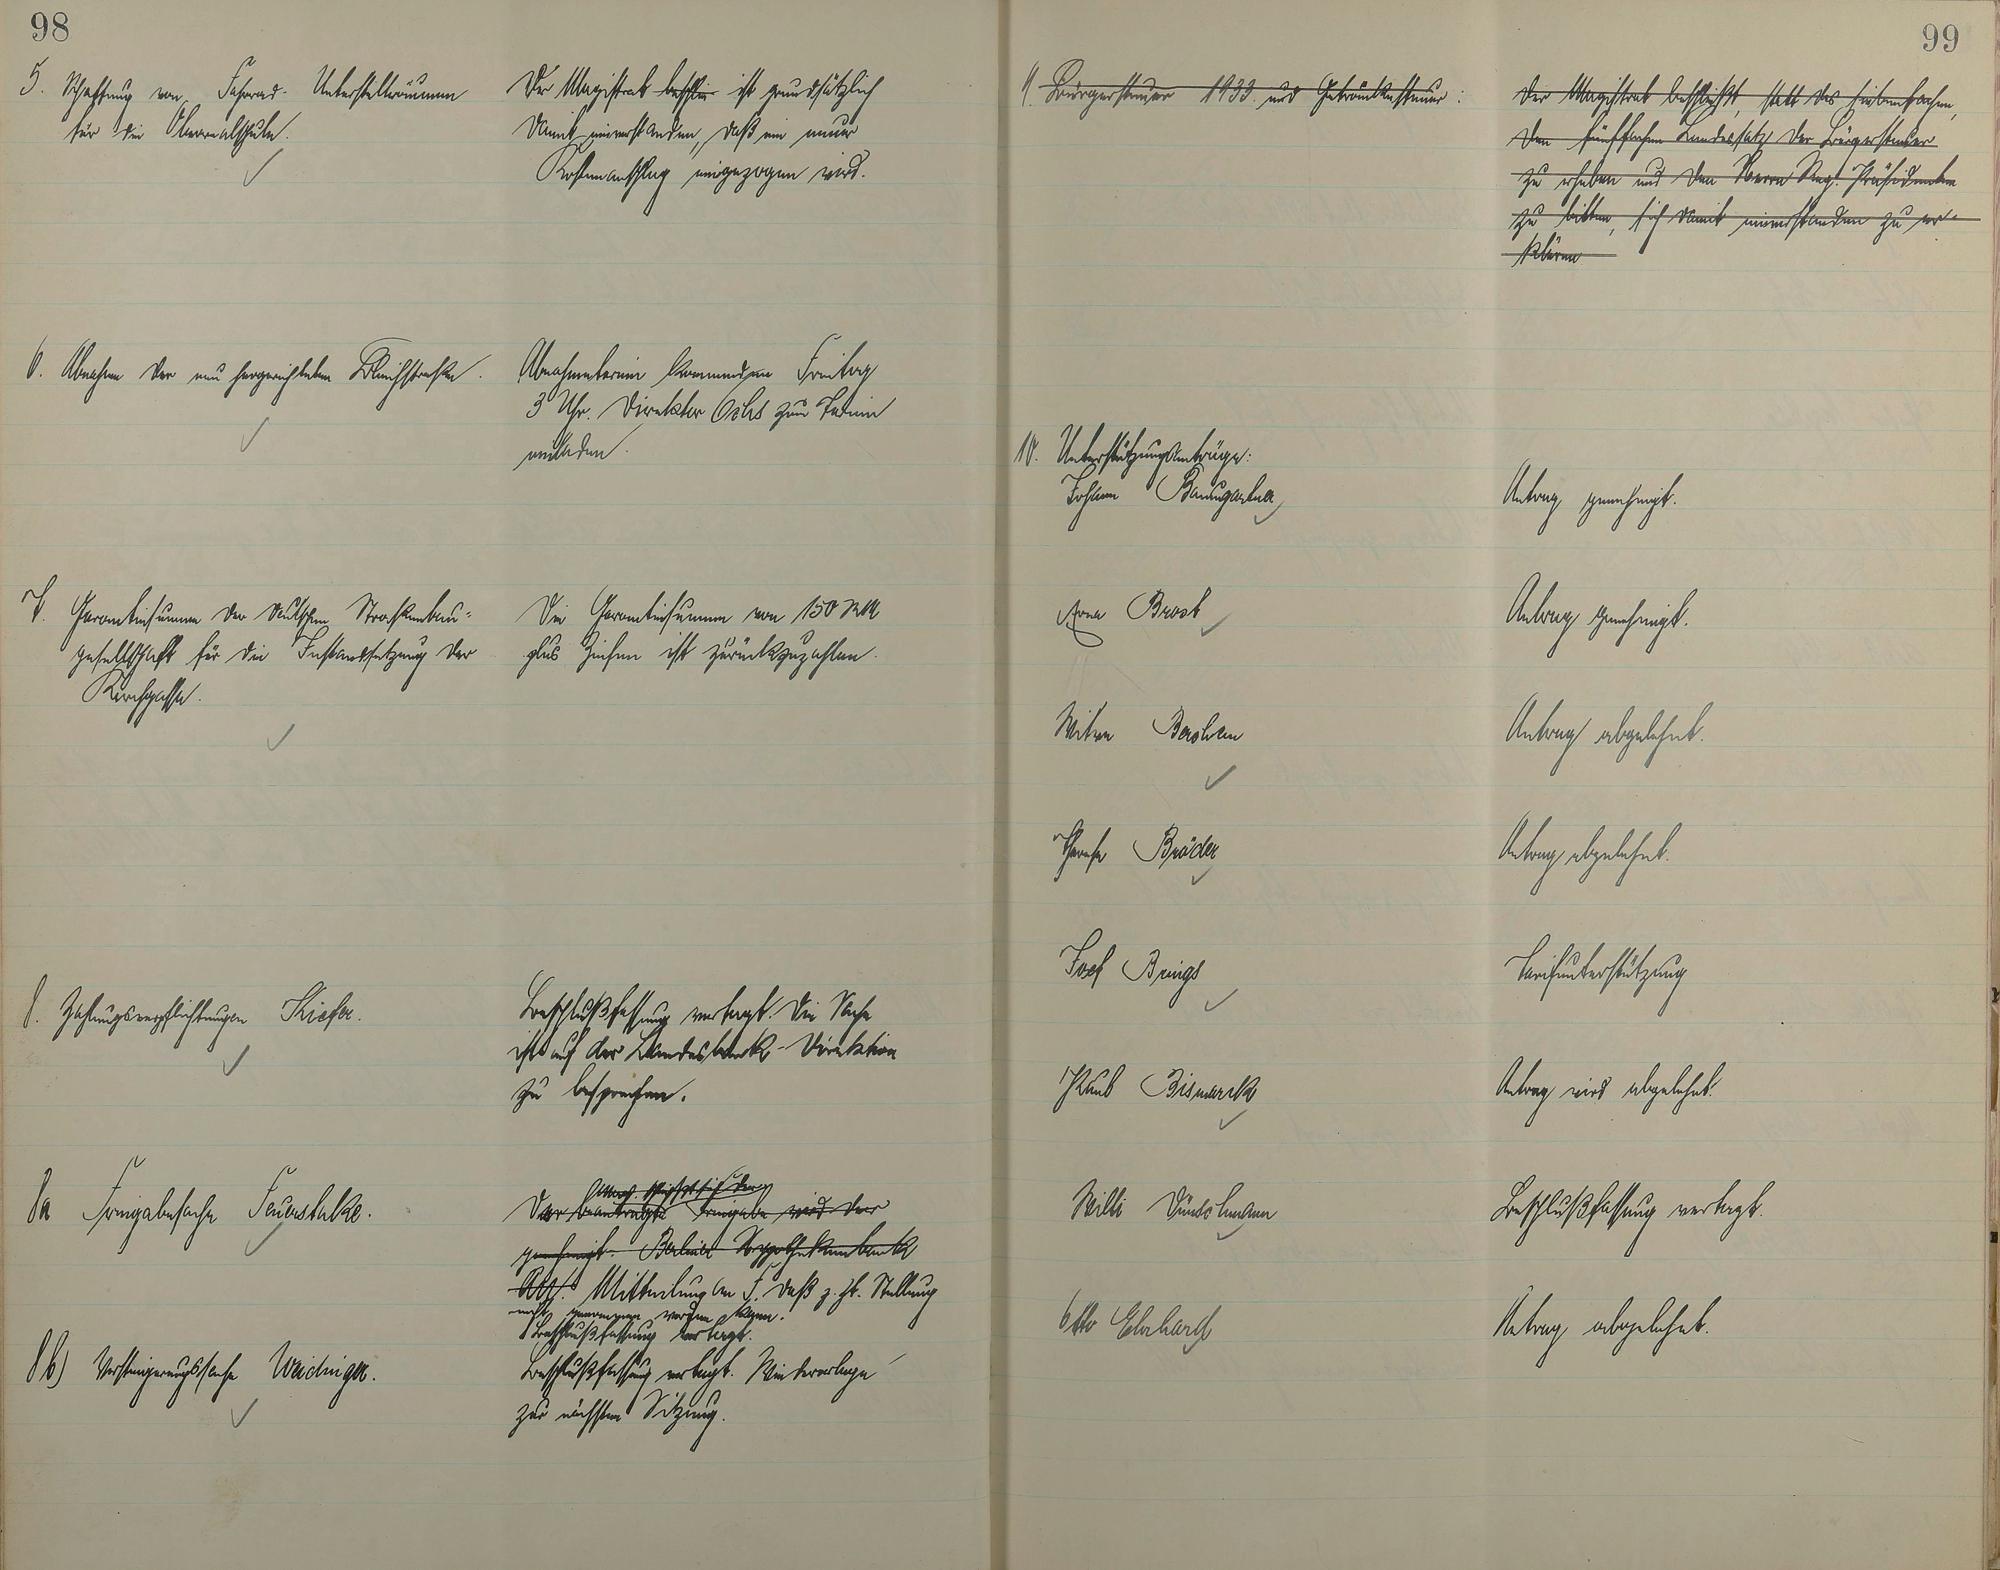 98
5. Schaffung von Fahrrad-Unterstellräumen
für die Oberrealschule.
Der Magistrat beschlie ist grundsätzlich
damit einverstanden, daß ein neuer
Kostenanschlag eingezogen wird.
6. Abnahme der neu hergerichteten Bleichstraße.
Abnahmetermin kommenden Freitag
3 Uhr. Direktor Ochs zum Termin
einladen.
7. Garantiesumme der Deutschen Strassenbau-
gesellschaft für die Instandsetzung der
Kirchgasse.
Die Garantiesumme von 150 RM
plus Zinsen ist zurückzuzahlen.
8. Zahlungsverpflichtungen Kiefer.
Beschlußfassung vertagt. Die Sache
ist auf der Landesbank-Direktion
zu besprechen.
8a Freigabesache Feuerstake.
Der beantragte Freigabe wird der
genehmigt. Berliner Hypothekenbank
Mitteilung an F. daß z. Zt. Stellung
nicht genommen werden kann.
Beschlußfassung vertagt.
8b) Versteigerungssache Weidinger.
Beschlußfassung vertagt. Wiedervorlage
zur nächsten Sitzung.
99
9. Bürgersteuer 1933 und Getränkesteuer:
Der Magistrat beschließt, statt des siebenfachen,
den fünffachen Landessatz der Bürgersteuer
zu erheben und den Herrn Reg. Präsidenten
zu bitten, sich damit einverstanden zu er-
klären
10. Unterstützungsanträge:
Johann Baumgarten
Antrag genehmigt.
Brost
Antrag genehmigt.
Witwe
Antrag abgelehnt.
Therese Bröder
Antrag abgelehnt.
Josef Brings
Tarifunterstützung
Bismarck
Antrag wird abgelehnt.
Willi
Beschlußfassung vertagt.
Otto Ehrhard
Antrag abgelehnt.